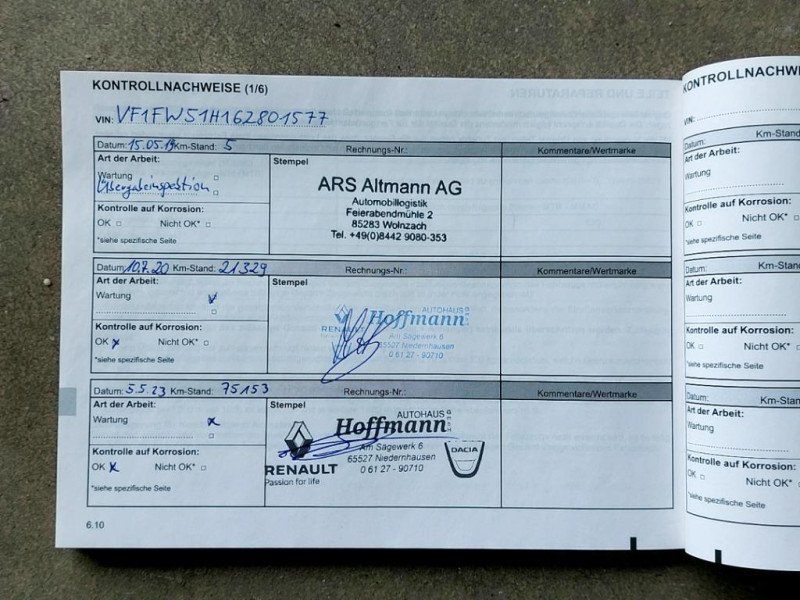 KONTROLLNACHWEISE (1/6)
VIN: VF1FW51H162801577
Datum: 15.05.19 Km-Stand: 5 Rechnungs-Nr.: Kommentare/Wertmarke
Art der Arbeit:
Wartung
Übergabeinspektion
Kontrolle auf Korrosion:
OK Nicht OK*
*siehe spezifische Seite
Stempel
ARS Altmann AG
Automobillogistik
Feierabendmühle 2
85283 Wolnzach
Tel. +49(0)8442 9080-353
Datum: 10.7.20 Km-Stand: 21329 Rechnungs-Nr.: Kommentare/Wertmarke
Art der Arbeit:
Wartung
Kontrolle auf Korrosion:
OK x Nicht OK*
*siehe spezifische Seite
Stempel
AUTOHAUS
Hoffmann
RENAULT
Am Sägewerk 6
65527 Niedernhausen
0 61 27 - 90710
Datum: 5.5.23 Km-Stand: 75153 Rechnungs-Nr.: Kommentare/Wertmarke
Art der Arbeit:
Wartung x
Kontrolle auf Korrosion:
OK x Nicht OK*
*siehe spezifische Seite
Stempel
AUTOHAUS
Hoffmann GmbH
Am Sägewerk 6
65527 Niedernhausen
0 61 27 - 90710
RENAULT
Passion for life
DACIA
6.10
TEILE UND REPARATUREN
KONTROLLNACHWE
VIN:
Datum: Km-Stand
Art der Arbeit:
Wartung
Kontrolle auf Korrosion:
OK Nicht OK*
*siehe spezifische Seite
Datum: Km-Stan
Art der Arbeit:
Wartung
Kontrolle auf Korrosion:
OK Nicht OK*
*siehe spezifische Seite
Datum: Km-Stan
Art der Arbeit:
Wartung
Kontrolle auf Korrosion:
OK Nicht OK*
*siehe spezifische Seite